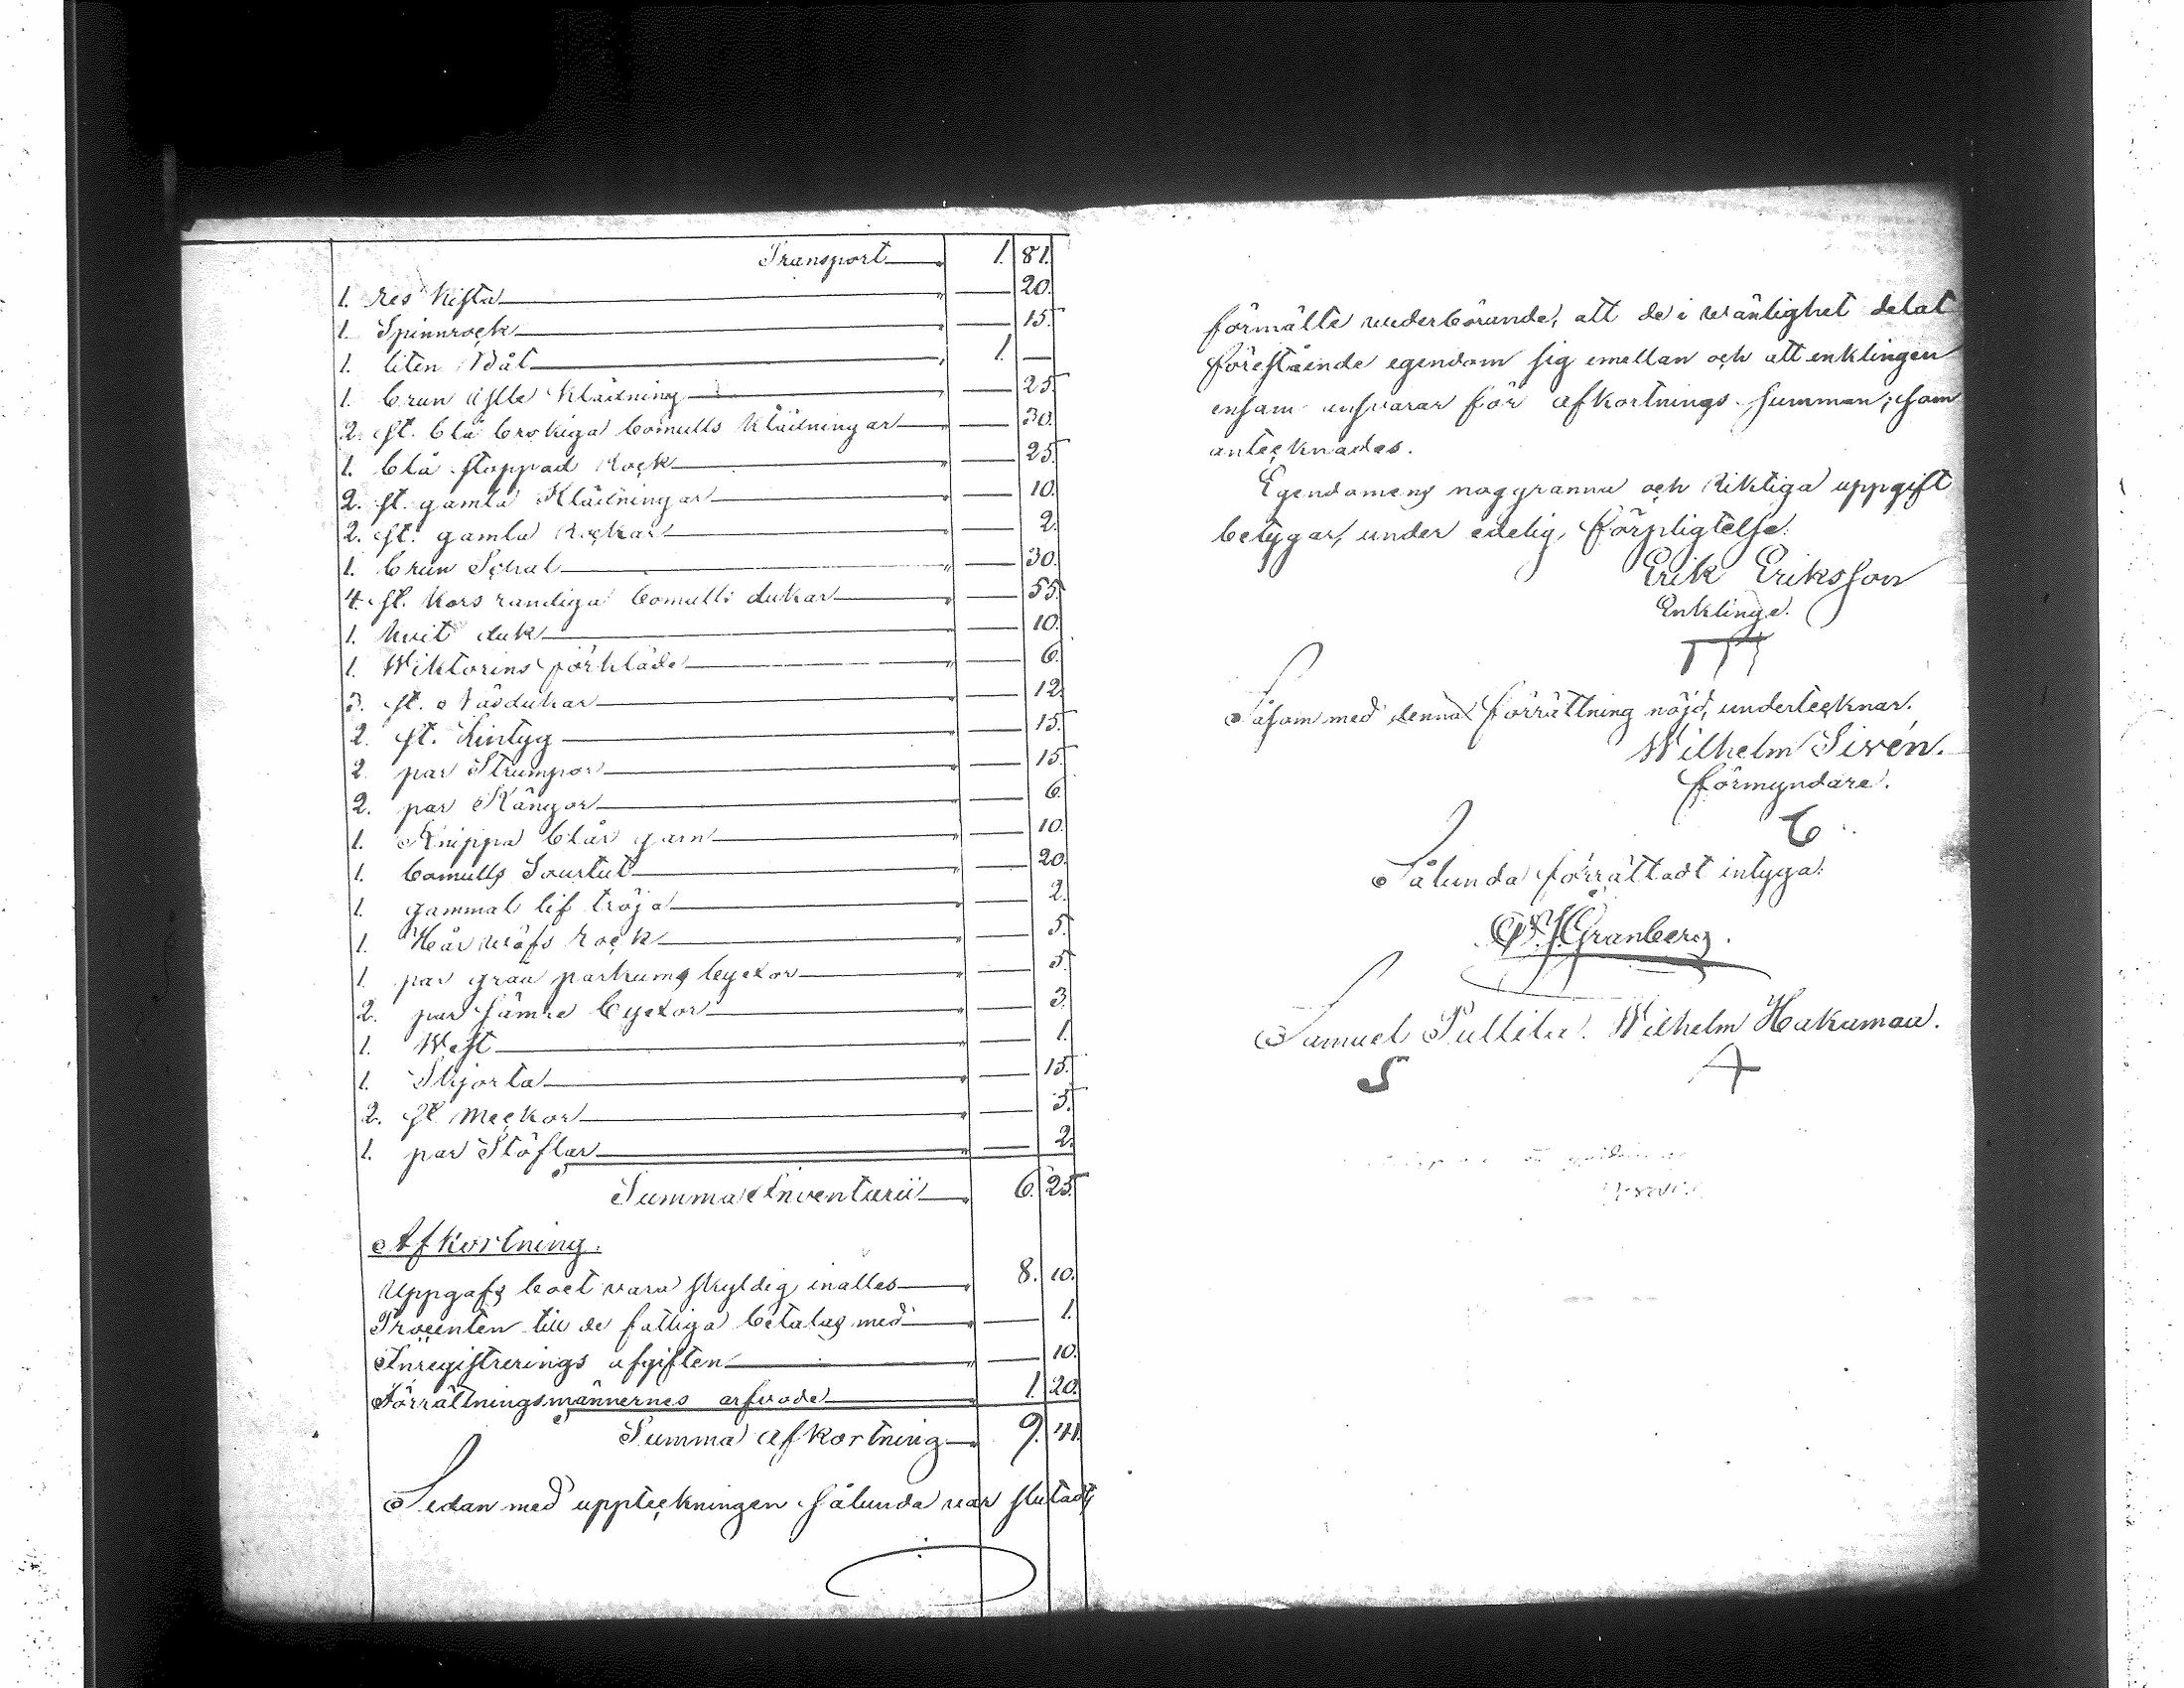 Transport 1. 81.
1. res Kista 20.
1. Spinnrock 15.
1. liten Båt 1. —
1. brun ylle Klädning 25.
2. st. blå brokiga bomulls Klädningar 30.
1. blå stoppad Rock 25.
2. st. gamla Klädningar 10.
2. st. gamla Rockar 2.
1. brun Schal 30.
4. st. kors randiga bomulls dukar 55.
1. hvit duk 10.
1. Wiktorins förkläde 6.
3. st. Näsdukar 12.
2. st. Lintyg 15.
2. par Strumpor 15.
2. par Kängor 6.
1. Knippa blår garn 10.
1. bomulls Sourtut 20.
1. gammal lif tröja 2.
1. Hår wäfs rock 5.
1. par grau parkums byxor 5.
2. par sämre byxor 3.
1. West 1.
1. Skjorta 15.
2. st. meckor 3.
1. par Stöflar 2.
Summa Inventarii 6. 25.
Afkortning.
Uppgafs boet vara skyldig inalles 8. 10.
Procenten till de fattiga betalas med 1.
Inregistrerings afgiften 10.
Förrättningsmännernes arfvode 1. 20.
Summa afkortning 9. 41.
Sedan med uppteckningen sålunda var slutadt,
förmälte wederbörande, att de i wänlighet delat
förestående egendom sig emellan och att enklingen
ensam ansvarar för afkortnings summan; som
antecknades.
Egendomens noggranna och Riktiga uppgift
betygar, under edelig, förpligtelse.
Erik Eriksson
Enklinge.
Såsom med denna förrättning nöjd, undertecknar.
Wilhelm Sirén.
förmyndare.
Sålunda förrättadt intyga:
Granberg.
Samuel Pullila. Wilhelm Hakamau.
S A